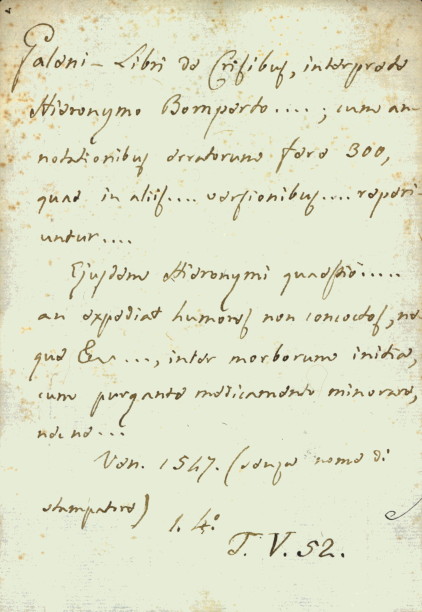 Galeni – Libri de Crisibus, interprete
Hieronymo Bomperto....; cum an-
notationibus erratorum fere 300,
quae in aliis.... versionibus.... reperi-
untur....
Ejusdem Hieronymi quaestio.....
an expediat humores non concoctos, ne-
que &c...., inter morborum initia,
cum purgante medicamento minorare,
nec ne...
Ven. 1547. (senza nome di
stampatore)
1. 4.º
T. V. 52.